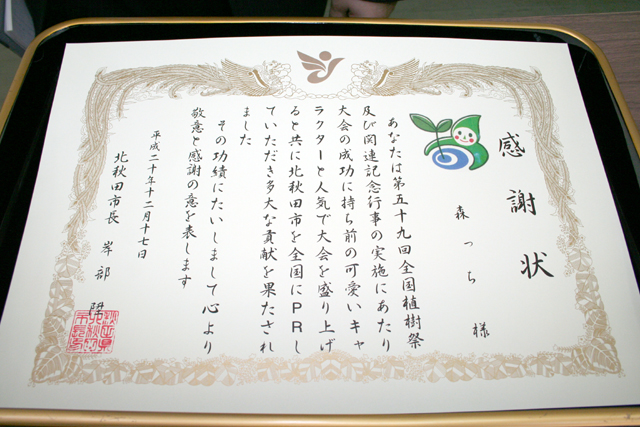 感謝状
森っち 様
あなたは第五十九回全国植樹祭
及び関連記念行事の実施にあたり
大会の成功に持ち前の可愛いキャ
ラクターと人気で大会を盛り上げ
ると共に北秋田市を全国にPRし
ていただき多大な貢献を果たされ
ました
その功績にたいしまして心より
敬意と感謝の意を表します
平成二十年十二月十七日
北秋田市長 岸部 陞